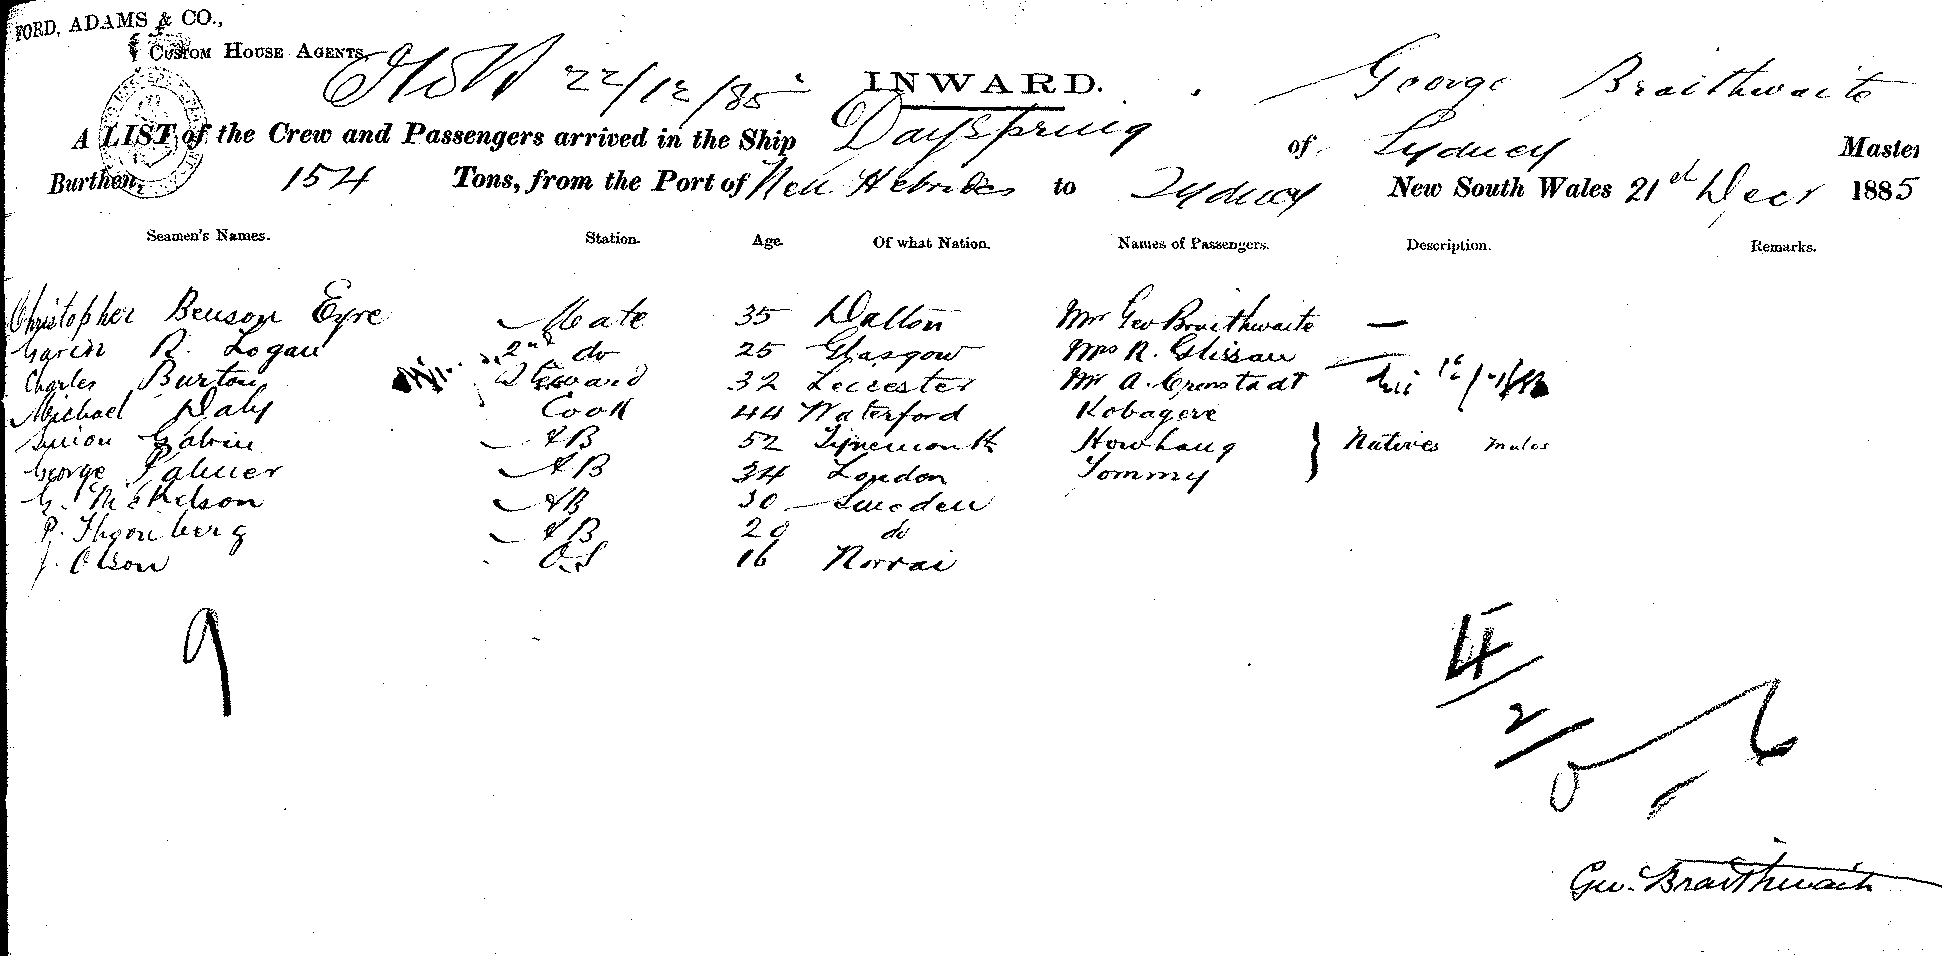 FORD, ADAMS & CO.,
CUSTOM HOUSE AGENTS
22/12/85 INWARD. George Braithwaite
A LIST of the Crew and Passengers arrived in the Ship Dayspring of Sydney Master
Burthen, 154 Tons, from the Port of New Hebrides to Sydney New South Wales 21st Decr 1885
Seamen's Names. Station. Age. Of what Nation. Names of Passengers. Description. Remarks.
Christopher Benson Eyre Mate 35 Dalton Mr Geo Braithwaite —
Gavin R. Logan 2nd do 25 Glasgow Mrs R. Glissan
Charles Burton Steward 32 Leicester Mr A. Cronstadt
Michael Daly Cook 44 Waterford Kobagere
Simon Galvin AB 52 Tynemouth Howhang } Natives males
George Palmer AB 34 London Tommy
G. Nickelson AB 30 Sweden
P. Thoonberg AB 20 do
J. Olson O.S 16 Norvai
9
4/2/0
Geo. Braithwaite